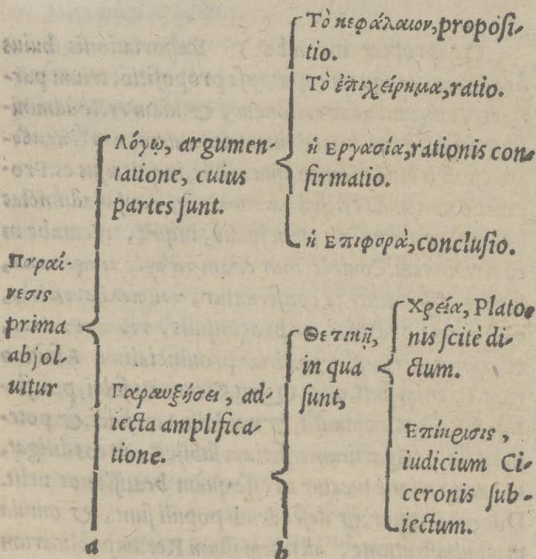 Παραί-
νεσις
prima
absol-
uitur
Λόγῳ, argumen-
tatione, cuius
partes sunt.
Τὸ κεφάλαιον, proposi-
tio.
Τὸ ἐπιχείρημα, ratio.
ἡ Εργασία, rationis con-
firmatio.
ἡ Επιφορὰ, conclusio.
Παραυξήσει, ad-
iecta amplifica-
tione.
Θετικῇ,
in qua
sunt,
Χρεία, Plato-
nis scitè di-
ctum.
Επίκρισις,
iudicium Ci-
ceronis sub-
iectum.
a b